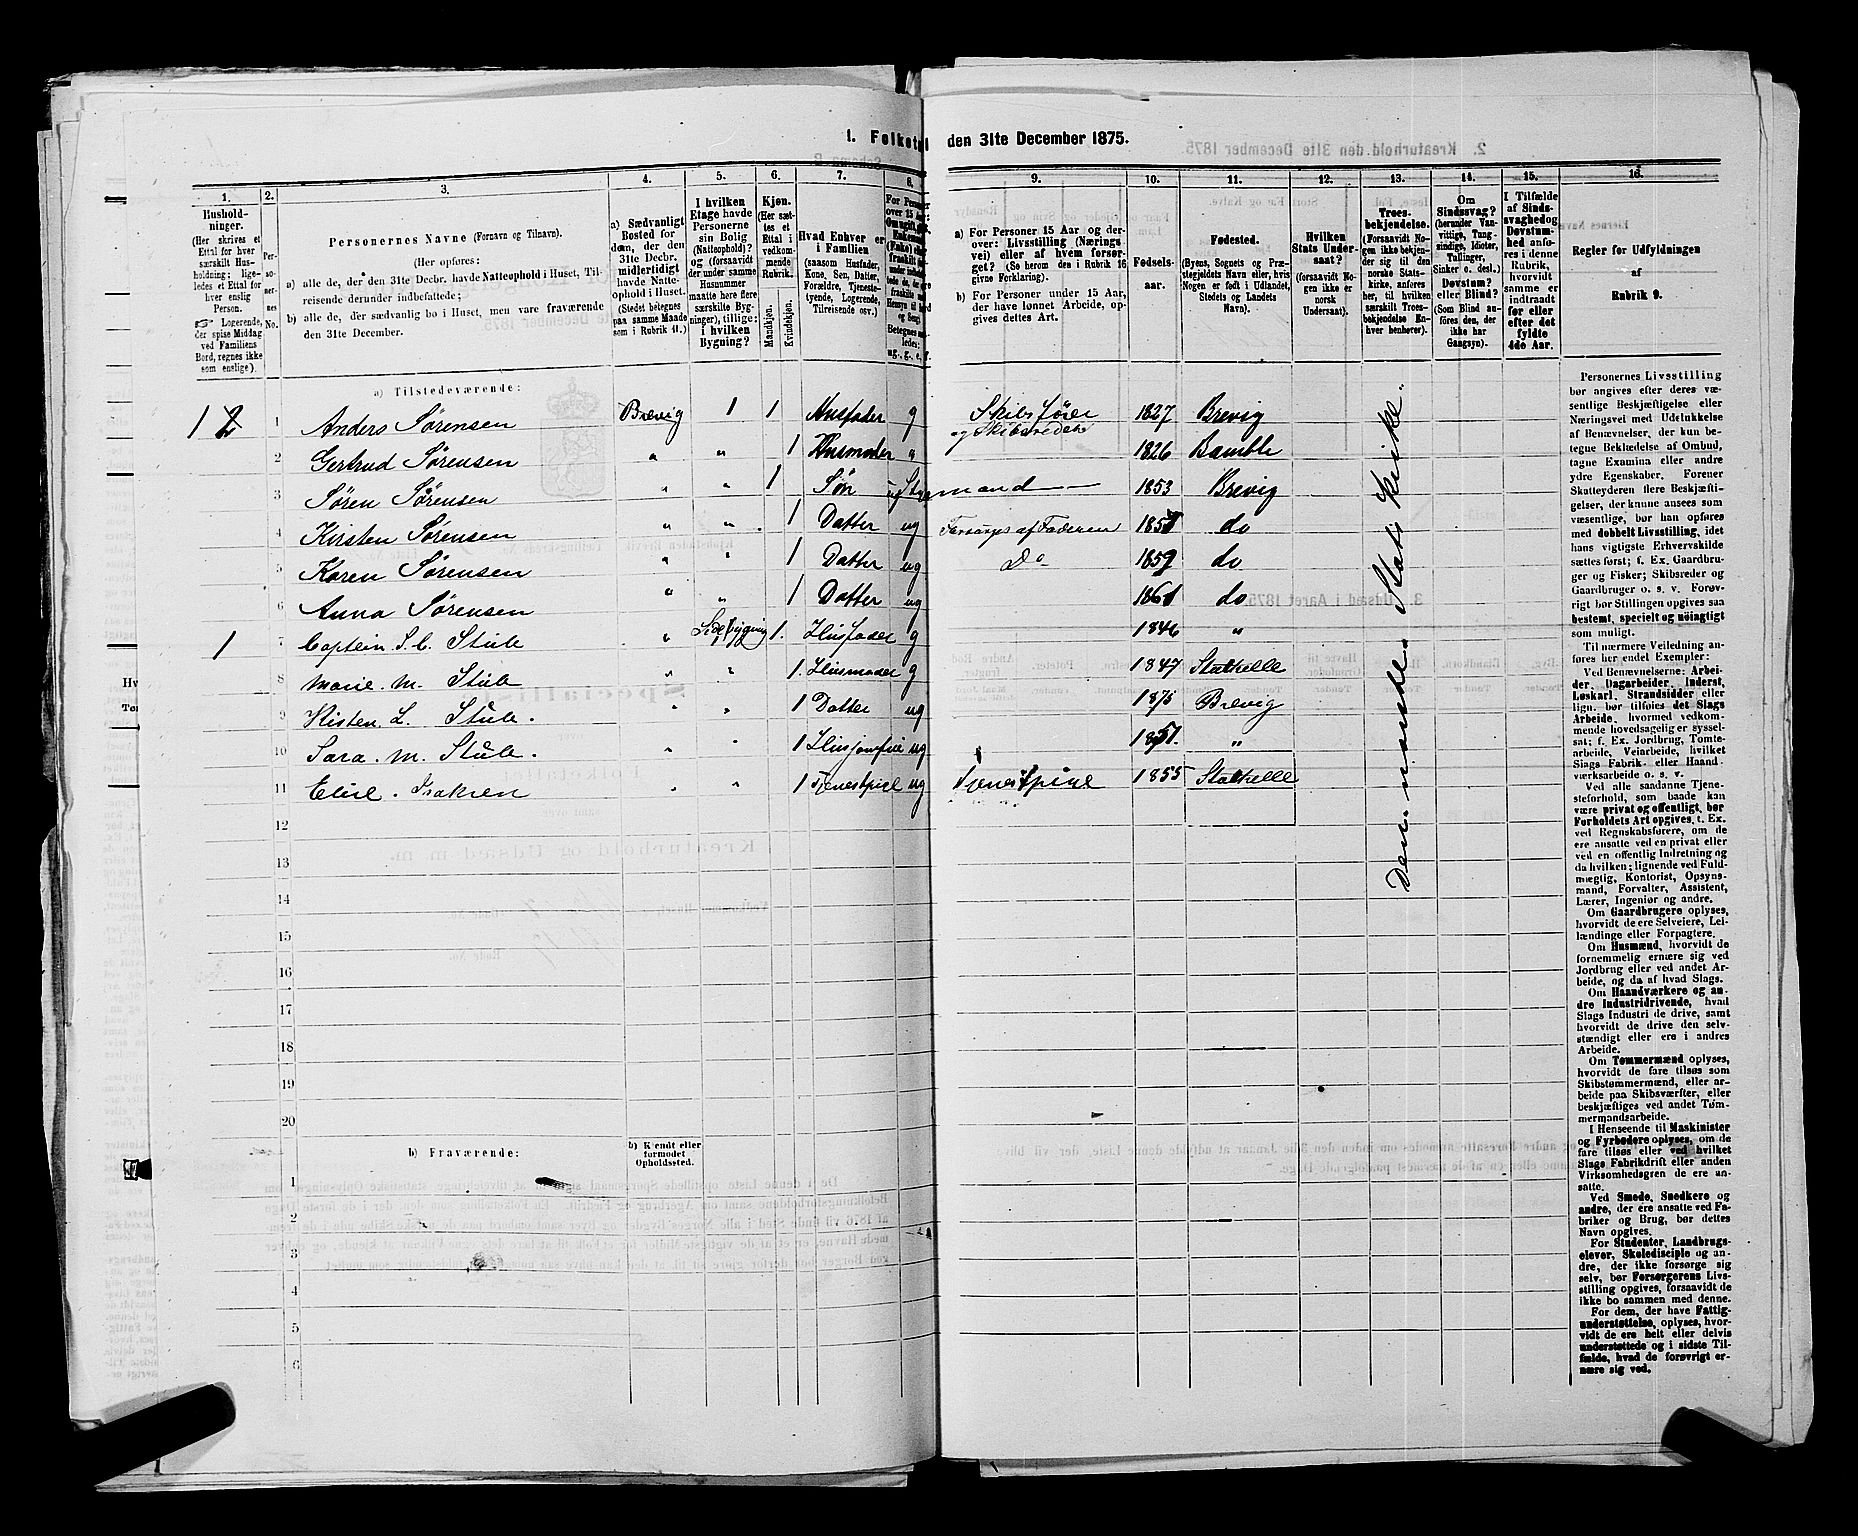 1. Folketal den 31te December 1875.
1. 2. 3. 4. 5. 6. 7. 8. 9. 10. 11. 12. 13. 14. 15. 16.
Husholdninger. (Her skrives et Ettal for hver særskilt Husholdning; ligeledes et Ettal for hver enslig Person. Logerende, der spise Middag ved Familiens Bord, regnes ikke som enslige).
Personernes No.
Personernes Navne (Fornavn og Tilnavn).
(Her opføres:
a) alle de, der den 31te Decbr. havde Natteophold i Huset, Tilreisende derunder indbefattede;
b) alle de, der sædvanlig bo i Huset, men vare fraværende den 31te December.
a) Sædvanligt Bosted for dem, der den 31te Decbr. midlertidigt havde Natteophold i Huset. (Stedet betegnes paa samme Maade som i Rubrik 11.)
I hvilken Etage havde Personerne sin Bolig (Natteophold)? og (forsaavidt der under samme Husnummer maatte høre flere særskilte Bygninger), tillige: i hvilken Bygning?
Kjøn. (Her sættes et Ettal i vedkommende Rubrik.)
Mandkjøn.
Kvindekjøn.
Hvad Enhver er i Familien (saasom Husfader, Kone, Søn, Datter, Forældre, Tjenestetyende, Logerende, Tilreisende osv.)
a) For Personer 15 Aar og derover: Livsstilling (Næringsvei) eller af hvem forsørget? (Se herom den i Rubrik 16 givne Forklaring).
b) For Personer under 15 Aar, der have lønnet Arbeide, opgives dettes Art.
Fødselsaar.
Fødested. (Byens, Sognets og Præstegjeldets Navn eller, hvis Nogen er født i Udlandet, Stedets og Landets Navn).
Hvilken Stats Undersaat? (forsaavidt Nogen ikke er norsk Undersaat).
Troesbekjendelse. (Forsaavidt Nogen ikke bekjender sig til den norske Statskirke, anføres her, til hvilken særskilt Troesbekjendelse Enhver henhører).
Om Sindssvag? (herunder Vanvittige, Tungsindige, Idioter, Tullinger, Sinker o. desl.) Døvstum? eller Blind? (Som Blind anføres den, der ikke har Gangsyn).
I Tilfælde af Sindssvaghed og Døvstumhed anføres i denne Rubrik, hvorvidt samme er indtraadt før eller efter det fyldte 4de Aar.
Regler for Udfyldningen af Rubrik 9.
a) Tilstedeværende:
1 2 1 Anders Sørensen Brevig 1 1 Husfader g Skibsfører og Skibsreder 1827 Brevig
2 Gertrud Sørensen " " 1 Husmoder " 1826 Bamble
3 Søren Sørensen " " 1 Søn ug Styrmand 1853 Brevig
4 Kirsten Sørensen " " 1 Datter ug Forsørges af Faderen 1857 do
5 Karen Sørensen " " 1 Datter ug Do 1859 do
6 Anna Sørensen " " 1 Datter ug 1861 do
1 7 Captein S. C. Stule " Sidebygning 1. Husfader g 1846 "
8 Marie. M. Stule " " 1. Husmoder g 1847 Stathelle
9 Kisten L. Stule. " " 1 Datter ug 1875 Brevig
10 Sara. M. Stule. " " 1 Husjomfru ug 1851. "
11 Elise. Isaksen " " 1 Tjenestpige ug Tjenestpige 1855 Stathelle
12
13
14
15
16
17
18
19
20
Den norske Statskirke
b) Fraværende:
b) Kjendt eller formodet Opholdssted.
1
2
3
4
5
6
Personernes Livsstilling
bør angives efter deres væ-
sentlige Beskjæftigelse eller
Næringsvei med Udelukkelse
af Benævnelser, der kun be-
tegne Beklædelse af Ombud,
tagne Examina eller andre
ydre Egenskaber. Forener
Skatteyderen flere Beskjæfti-
gelser, der kunne ansees som
væsentlige, bør han opføres
med dobbelt Livsstilling, idet
hans vigtigste Erhvervskilde
sættes først; f. Ex. Gaardbru-
ger og Fisker; Skibsreder og
Gaardbruger o. s. v. Forøv-
rigt bør Stillingen opgives saa
bestemt, specielt og nøiagtigt
som muligt.
Til nærmere Veiledning an-
føres her endel Exempler:
Ved Benævnelserne: Arbei-
der, Dagarbeider, Inderst,
Løskarl, Strandsidder eller
lign. bør tilføies det Slags
Arbeide, hvormed vedkom-
mende hovedsagelig er syssel-
sat; f. Ex. Jordbrug, Tomte-
arbeide, Veiarbeide, hvilket
Slags Fabrik- eller Haand-
værksarbeide o. s. v.
Ved alle saadanne Tjene-
steforhold, som baade kan
være privat og offentligt, bør
Forholdets Art opgives, t. Ex.
ved Regnskabsførere, om de
ere ansatte ved en privat eller
ved en offentlig Indretning og
da hvilken; lignende ved Fuld-
mægtig, Kontorist, Opsyns-
mand, Forvalter, Assistent,
Lærer, Ingeniør og andre.
Om Gaardbrugere oplyses,
hvorvidt de ere Selveiere, Lei-
lændinge eller Forpagtere.
Om Husmænd, hvorvidt de
fornemmelig ernære sig ved
Jordbrug eller ved andet Ar-
beide, og da af hvad Slags.
Om Haandværkere og an-
dre Industridrivende, hvad
Slags Industri de drive, samt
hvorvidt de drive den selv-
stændigt eller ere i andres
Arbeide.
Om Tømmermænd oplyses,
hvorvidt de fare tilsøs som
Skibstømmermænd, eller ar-
beide paa Skibsværfter, eller
beskjæftiges ved andet Tøm-
mermandsarbeide.
I Henseende til Maskinister
og Fyrbødere oplyses, om de
fare tilsøs eller ved hvilket
Slags Fabrikdrift eller anden
Virksomhedsgren de ere an-
satte.
Ved Smede, Snedkere og
andre, der ere ansatte ved Fa-
briker og Brug, bør dettes
Navn opgives.
For Studenter, Landbrugs-
elever, Skoledisciple og an-
dre, der ikke forsørge sig
selv, bør Forsørgerens Livs-
stilling opgives, forsaavidt de
ikke bo sammen med denne.
For dem, der have Fattig-
understøttelse, oplyses, hvor-
vidt de ere helt eller delvis
understøttede og i sidste Til-
fælde, hvad de forøvrigt er-
nære sig ved.